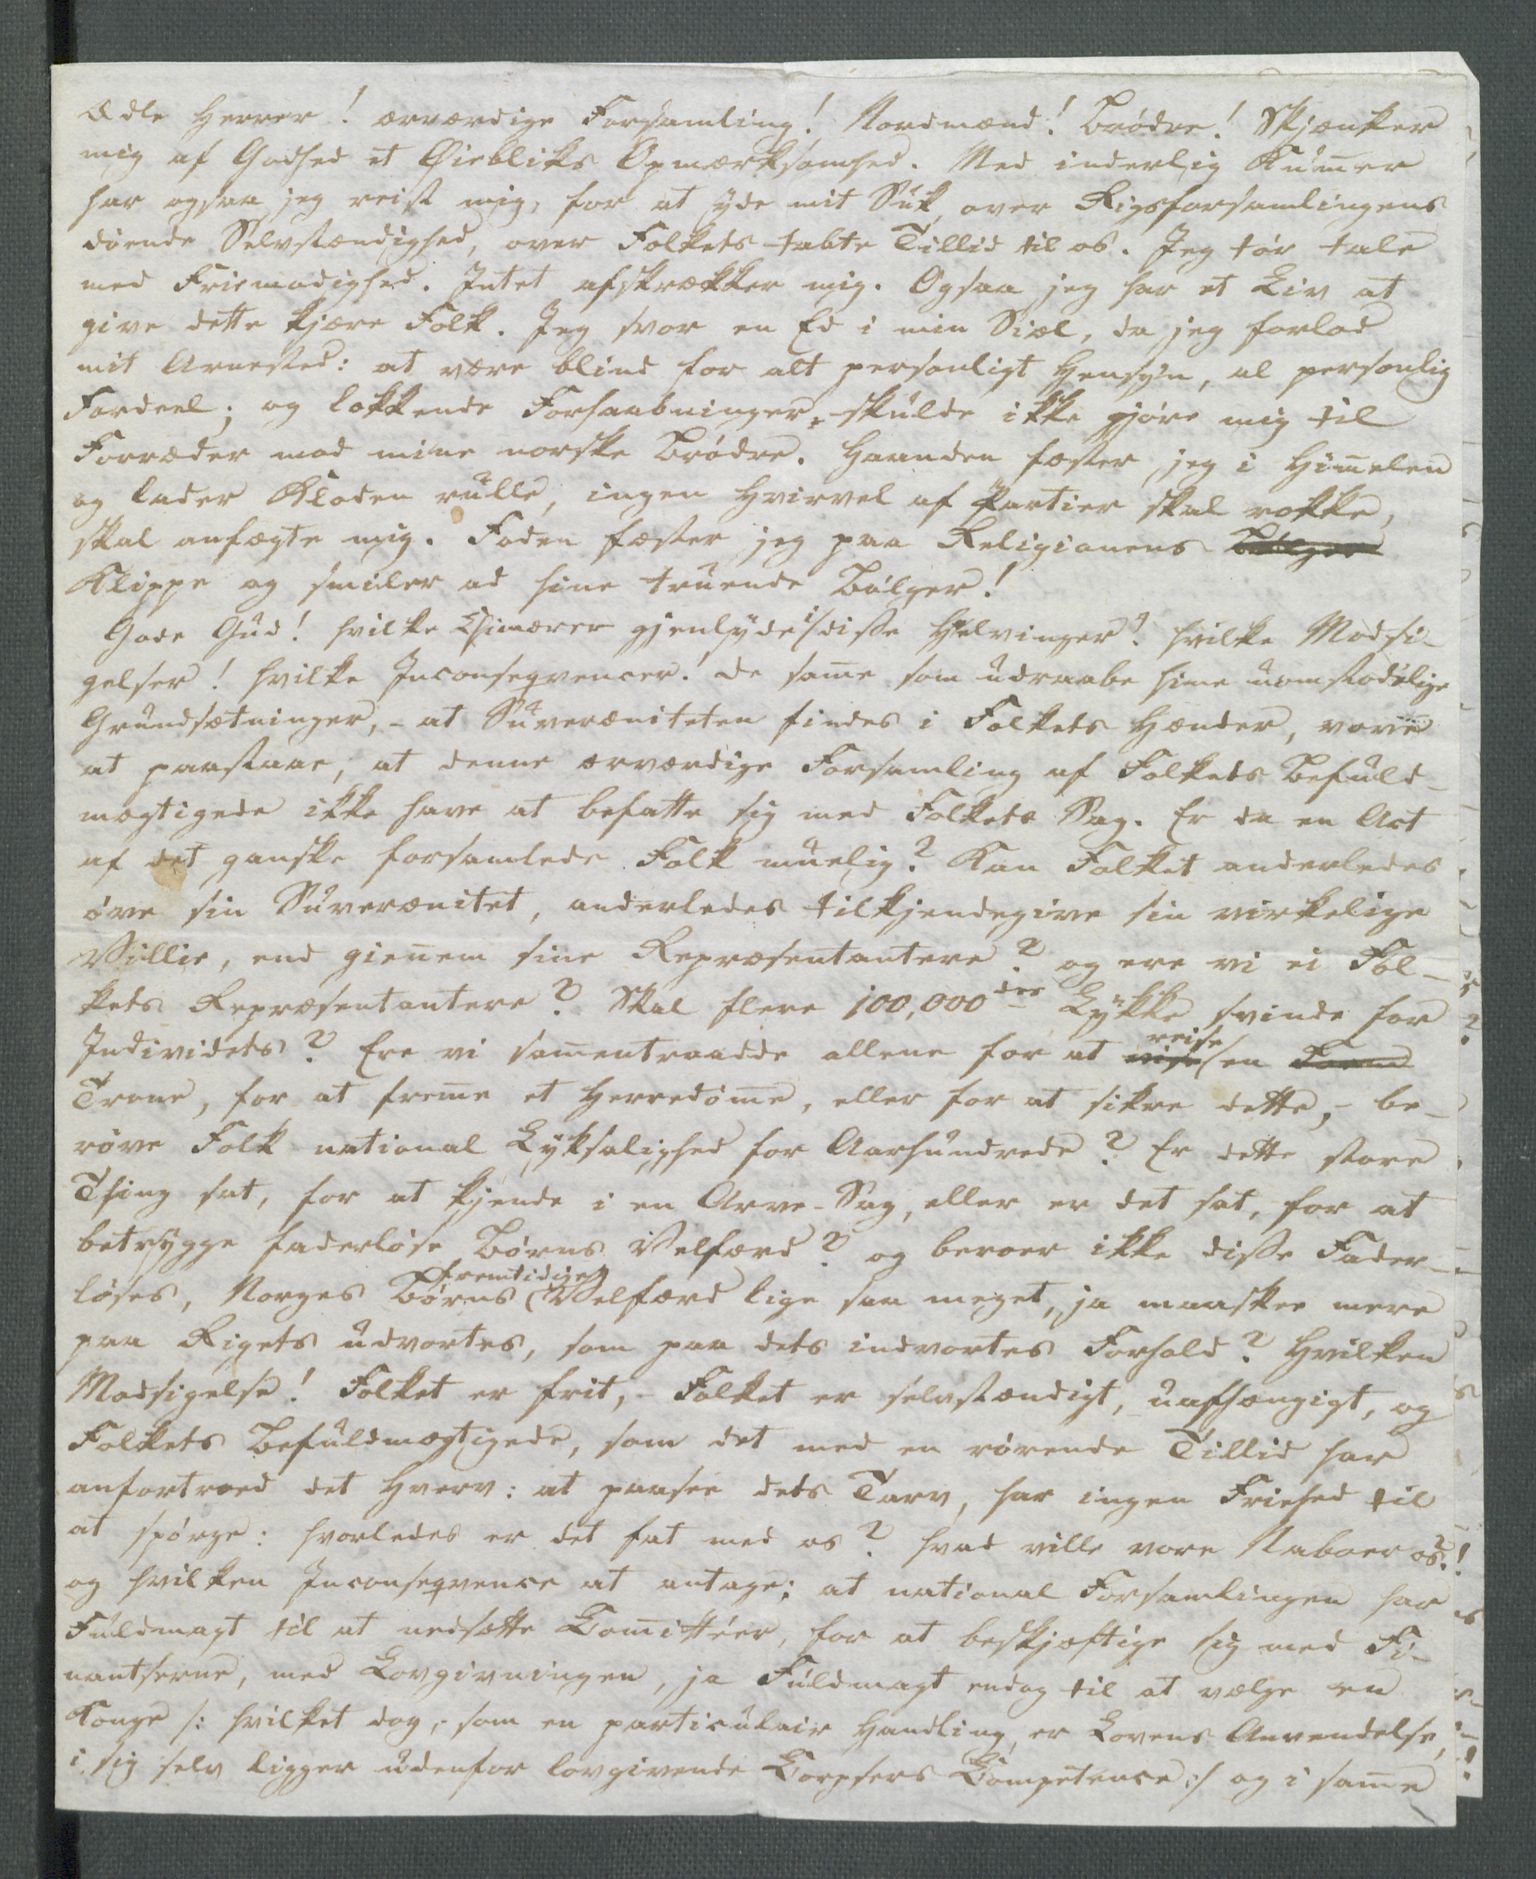 Ædle Herrer! ærværdige Forsamling! Nordmænd! Brödre! Skjænker
mig af Godhed et Öiebliks Opmærksomhed. Med inderlig Kum̅er
har ogsaa jeg reist mig, for at yde mit Suk over Rigsforsamlingens
döende Selvstændighed, over Folkets tabte Tillid til os. Jeg tör tale
med Friemodighed. Intet afskrækker mig. Ogsaa jeg har et Liv at
give dette kjære Folk. Jeg svor en Ed i min Siæl, da jeg forlod
mit Arnested: at være blind for alt personligt Hensyn, al personlig
Fordeel; og lokkende Forhaabninger, skulde ikke gjöre mig til
Forræder mod mine norske Brödre. Haanden fæster jeg i Him̅elen
og lader Kloden rulle, ingen Hvirvel af Partier skal rokke,
skal anfægte mig. Foden fæster jeg paa Religionens Bölger
Klippe og smiler ad hine truende Bölger!
Gode Gud! hvilke Chimærer gjenlyde i disse Hvelvinger? hvilke Modsi-
gelser! hvilke Inconseqvencer! de sam̅e som udraabe hine uomstödelige
Grundsætninger, - at Suveræniteten findes i Folkets Hænder, vove
at paastaae, at denne ærværdige Forsamling af Folkets Befuld-
mægtigede ikke have at befatte sig med Folkets Sag. Er da en Act
af det ganske forsamlede Folk muelig? Kan Folket anderledes
öve sin Suverænitet, anderledes tilkjendegive sin virkelige
Villie, end gien̅em sine Repræsentantere? og ere vi ei Fol-
kets Repræsentantere? Skal flere 100,000des Lykke svinde for
Individets? Ere vi sam̅entraadde allene for at vise reise en Form
Trone, for at frem̅e et Herredöm̅e, eller for at sikre dette, - be-
röve Folk national Lyksalighed for Aarhundrede? Er dette store
Thing sat, for at kjende i en Arve-Sag, eller er det sat, for at
betrygge faderløse Børns Velfærd? og beroer ikke disse Fader-
løses, Norges Børns fremtidige Velfærd lige saa meget, ja maaskee mere
paa Rigets udvortes, som paa dets indvortes Forhold? Hvilken
Modsigelse! Folket er frit, - Folket er selvstændigt, uafhængigt, og
Folkets Befuldmægtigede, som det med en rörende Tillid har
anfortroed det Hverv: at paasee dets Tarv, har ingen Friehed til
at spörge: hvorledes er det fat med os? hvad ville vore Naboer os?
og hvilken Inconseqvence at antage: at national Forsamlingen har
Fuldmagt til at nedsætte Com̅ittéer, for at beskjæftige sig med Fi-
nantserne, med Lovgivningen, ja Fuldmagt endog til at vælge en
Konge /: hvilket dog, som en particulair Handling, er Lovens Anvendelse,
i sig selv ligger udenfor lovgivende Corpsers Competence :/ og i sam̅e